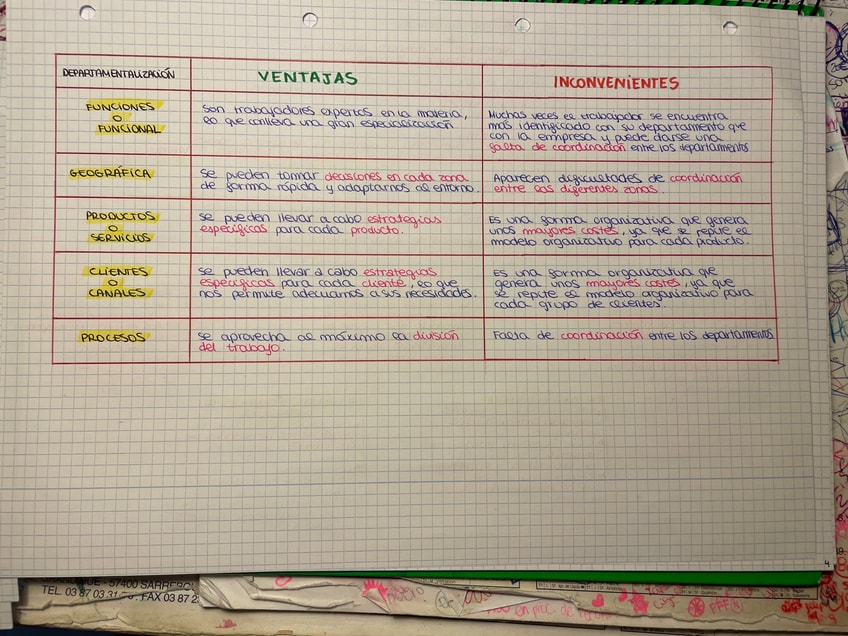 DEPARTAMENTALIZACIÓN
VENTAJAS
INCONVENIENTES
FUNCIONES
O
FUNCIONAL
Son trabajadores expertos en la materia,
lo que conlleva una gran especialización
Muchas veces el trabajador se encuentra
más identificado con su departamento que
con la empresa y puede darse una
falta de coordinación entre los departamentos
GEOGRÁFICA
Se pueden tomar decisiones en cada zona
de forma rápida y adaptarnos al entorno.
Aparecen dificultades de coordinación
entre las diferentes zonas.
PRODUCTOS
O
SERVICIOS
Se pueden llevar a cabo estrategias
específicas para cada producto.
Es una forma organizativa que genera
unos mayores costes, ya que se repite el
modelo organizativo para cada producto.
CLIENTES
O
CANALES
Se pueden llevar a cabo estrategias
específicas para cada cliente, lo que
nos permite adecuarnos a sus necesidades.
Es una forma organizativa que
genera unos mayores costes, ya que
se repite el modelo organizativo para
cada grupo de clientes.
PROCESOS
Se aprovecha al máximo la división
del trabajo.
Falta de coordinación entre los departamentos
4
57400
TEL. 03 87 03 31 FAX 03 87 2